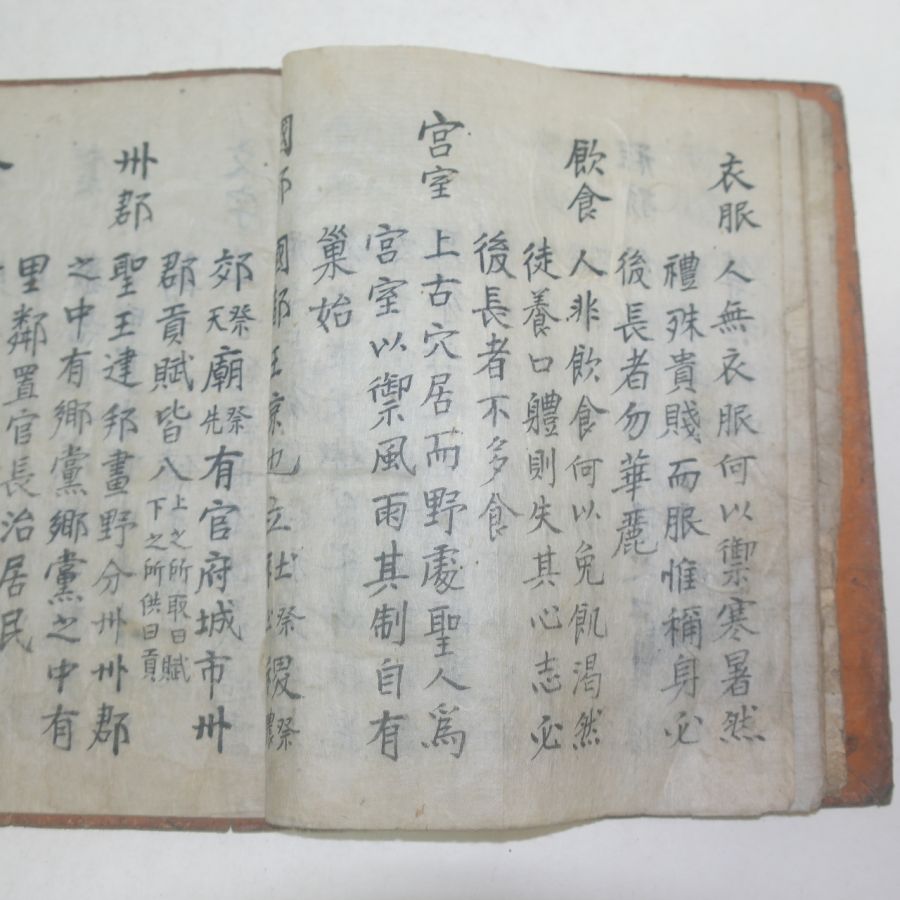 衣服 人無衣服何以禦寒暑然
禮殊貴賤而服惟稱身必
後長者勿華麗
飮食 人非飮食何以免飢渴然
徒養口軆則失其心志必
後長者不多食
宮室 上古穴居而野處聖人爲
宮室以禦風雨其制自有
巢始
國都 國都王京也立社祭稷祭
郊祭天廟祭先有官府城市州
郡貢賦皆入上之所取曰賦下之所供曰貢
州郡 聖王建邦畫野分州州郡
之中有鄕黨鄕黨之中有
里鄰置官長治居民